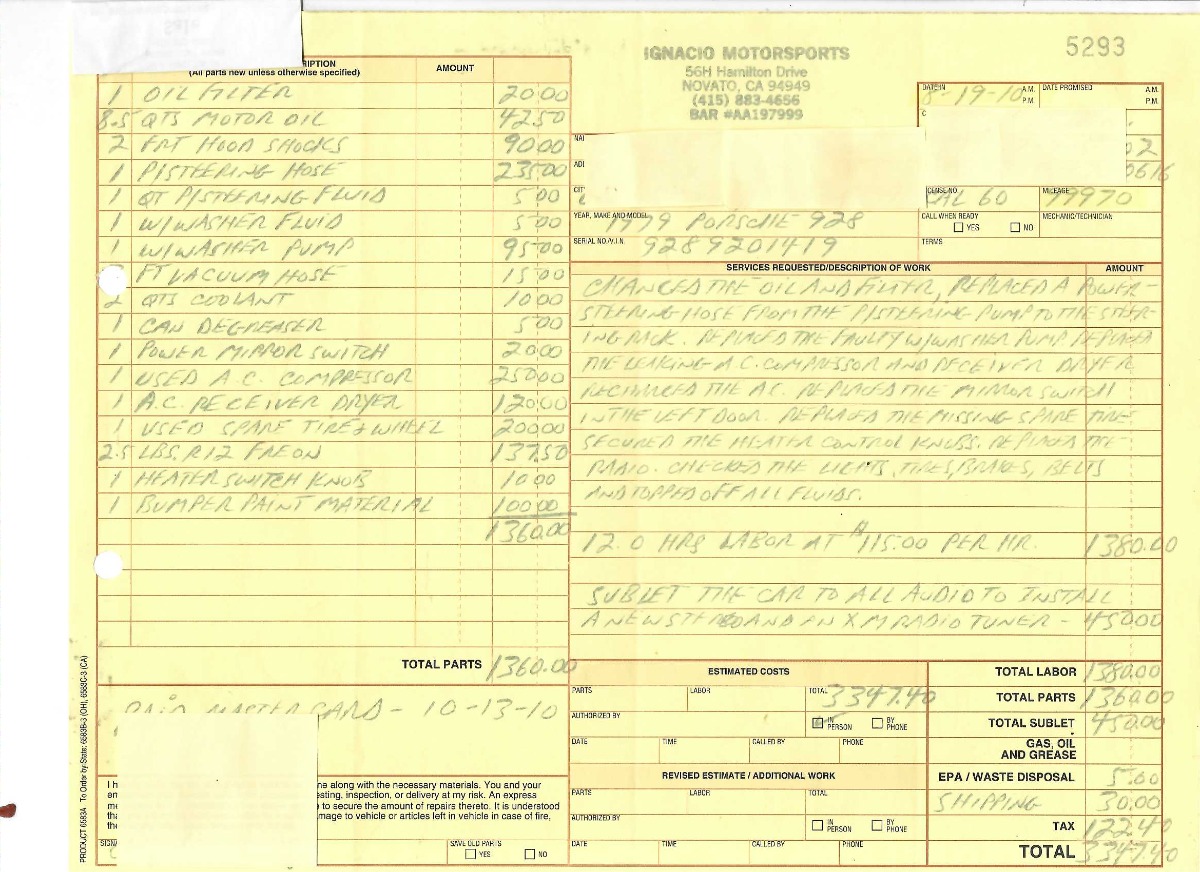 5293
IGNACIO MOTORSPORTS
56H Hamilton Drive
NOVATO, CA 94949
(415) 883-4656
BAR #AA197999
RIPTION
(All parts new unless otherwise specified)
AMOUNT
1 OIL FILTER 20.00
8.5 QTS MOTOR OIL 42.50
2 FRT HOOD SHOCKS 90.00
1 P/STEERING HOSE 235.00
1 QT P/STEERING FLUID 5.00
1 W/WASHER FLUID 5.00
1 W/WASHER PUMP 95.00
FT VACUUM HOSE 15.00
2 QTS COOLANT 10.00
1 CAN DEGREASER 5.00
1 POWER MIRROR SWITCH 20.00
1 USED A.C. COMPRESSOR 250.00
1 A.C. RECEIVER DRYER 120.00
1 USED SPARE TIRE & WHEEL 200.00
2.5 LBS. R12 FREON 137.50
1 HEATER SWITCH KNOB 10.00
1 BUMPER PAINT MATERIAL 100.00
1360.00
TOTAL PARTS 1360.00
PAID MASTERCARD - 10-13-10
DATE IN 8-19-10 A.M. P.M.
DATE PROMISED A.M. P.M.
02
0616
LICENSE NO. CAL 60
MILEAGE 99970
YEAR, MAKE AND MODEL 1979 PORSCHE 928
CALL WHEN READY YES NO
MECHANIC/TECHNICIAN
SERIAL NO./V.I.N. 9289201419
TERMS
SERVICES REQUESTED/DESCRIPTION OF WORK AMOUNT
CHANGED THE OIL AND FILTER, REPLACED A POWER-
STEERING HOSE FROM THE P/STEERING PUMP TO THE STEER-
ING RACK. REPLACED THE FAULTY W/WASHER PUMP REPLACED
THE LEAKING A.C. COMPRESSOR AND RECEIVER DRYER
RECHARGED THE A.C. REPLACED THE MIRROR SWITCH
IN THE LEFT DOOR. REPLACED THE MISSING SPARE TIRE.
SECURED THE HEATER CONTROL KNOBS. REPLACED THE
RADIO. CHECKED THE LIGHTS, TIRES, BRAKES, BELTS
AND TOPPED OFF ALL FLUIDS.
12.0 HRS LABOR AT $115.00 PER HR. 1380.00
SUBLET THE CAR TO ALL AUDIO TO INSTALL
A NEW STEREO AND AN XM RADIO TUNER - 450.00
ESTIMATED COSTS
PARTS LABOR TOTAL 3347.40
AUTHORIZED BY IN PERSON BY PHONE
DATE TIME CALLED BY PHONE
REVISED ESTIMATE / ADDITIONAL WORK
PARTS LABOR TOTAL
AUTHORIZED BY IN PERSON BY PHONE
DATE TIME CALLED BY PHONE
TOTAL LABOR 1380.00
TOTAL PARTS 1360.00
TOTAL SUBLET 450.00
GAS, OIL AND GREASE
EPA / WASTE DISPOSAL 5.00
SHIPPING 30.00
TAX 122.40
TOTAL 3347.40
ne along with the necessary materials. You and your
esting, inspection, or delivery at my risk. An express
) to secure the amount of repairs thereto. It is understood
amage to vehicle or articles left in vehicle in case of fire,
SAVE OLD PARTS YES NO
PRODUCT 6583A To Order by State: 6583B-3 (OH), 6583C-3 (CA)